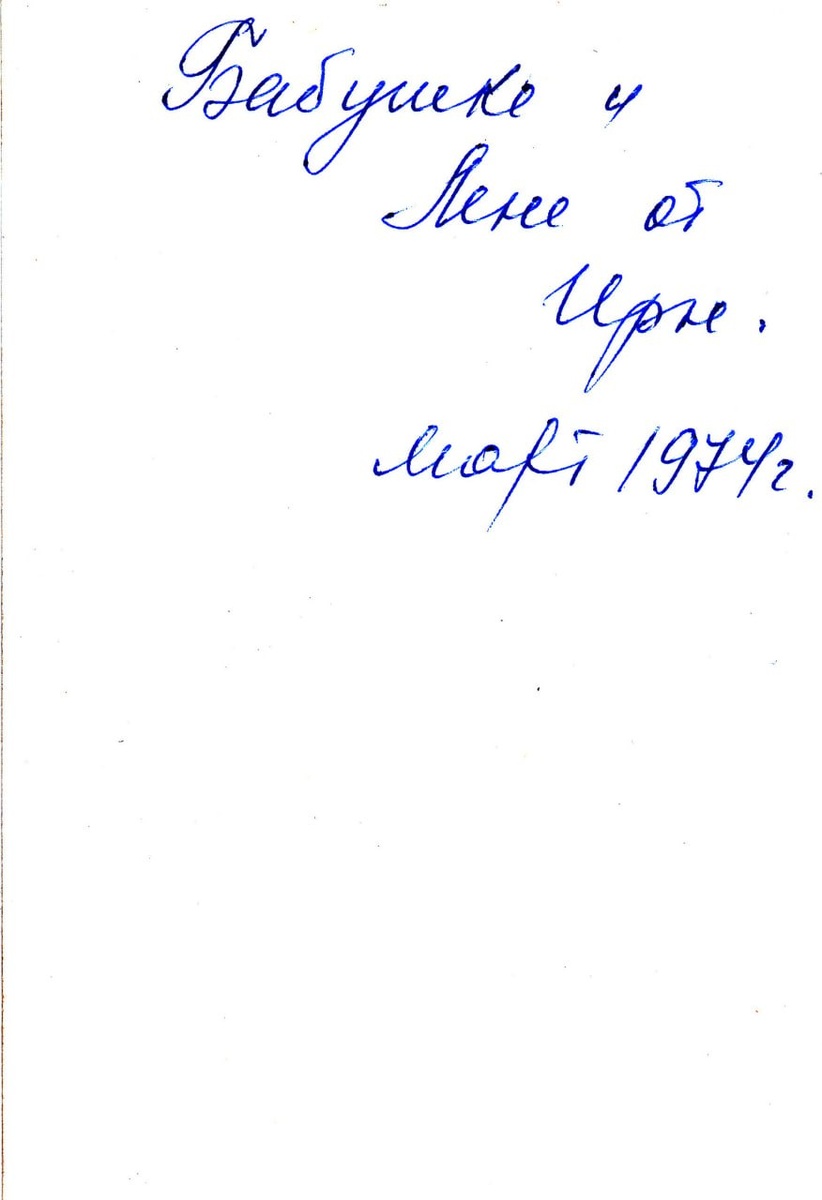 Бабушке и
Лене от
Иры.
март 1974г.